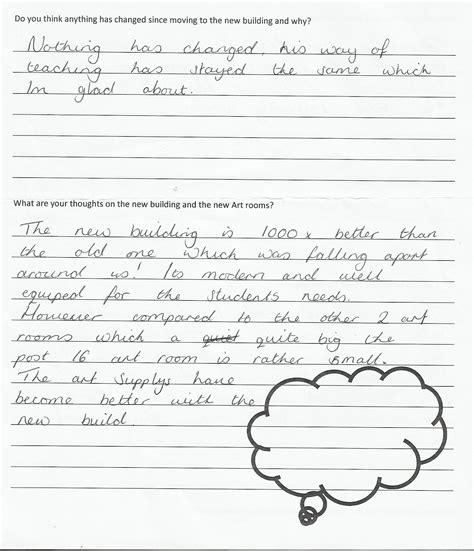 Do you think anything has changed since moving to the new building and why?
Nothing has changed, his way of
teaching has stayed the same which
Im glad about.
What are your thoughts on the new building and the new Art rooms?
The new building is 1000 x better than
the old one which was falling apart
around us! Its modern and well
equiped for the students needs.
However compared to the other 2 art
rooms which a quiet quite big the
post 16 art room is rather small.
The art supplys have
become better with the
new build.